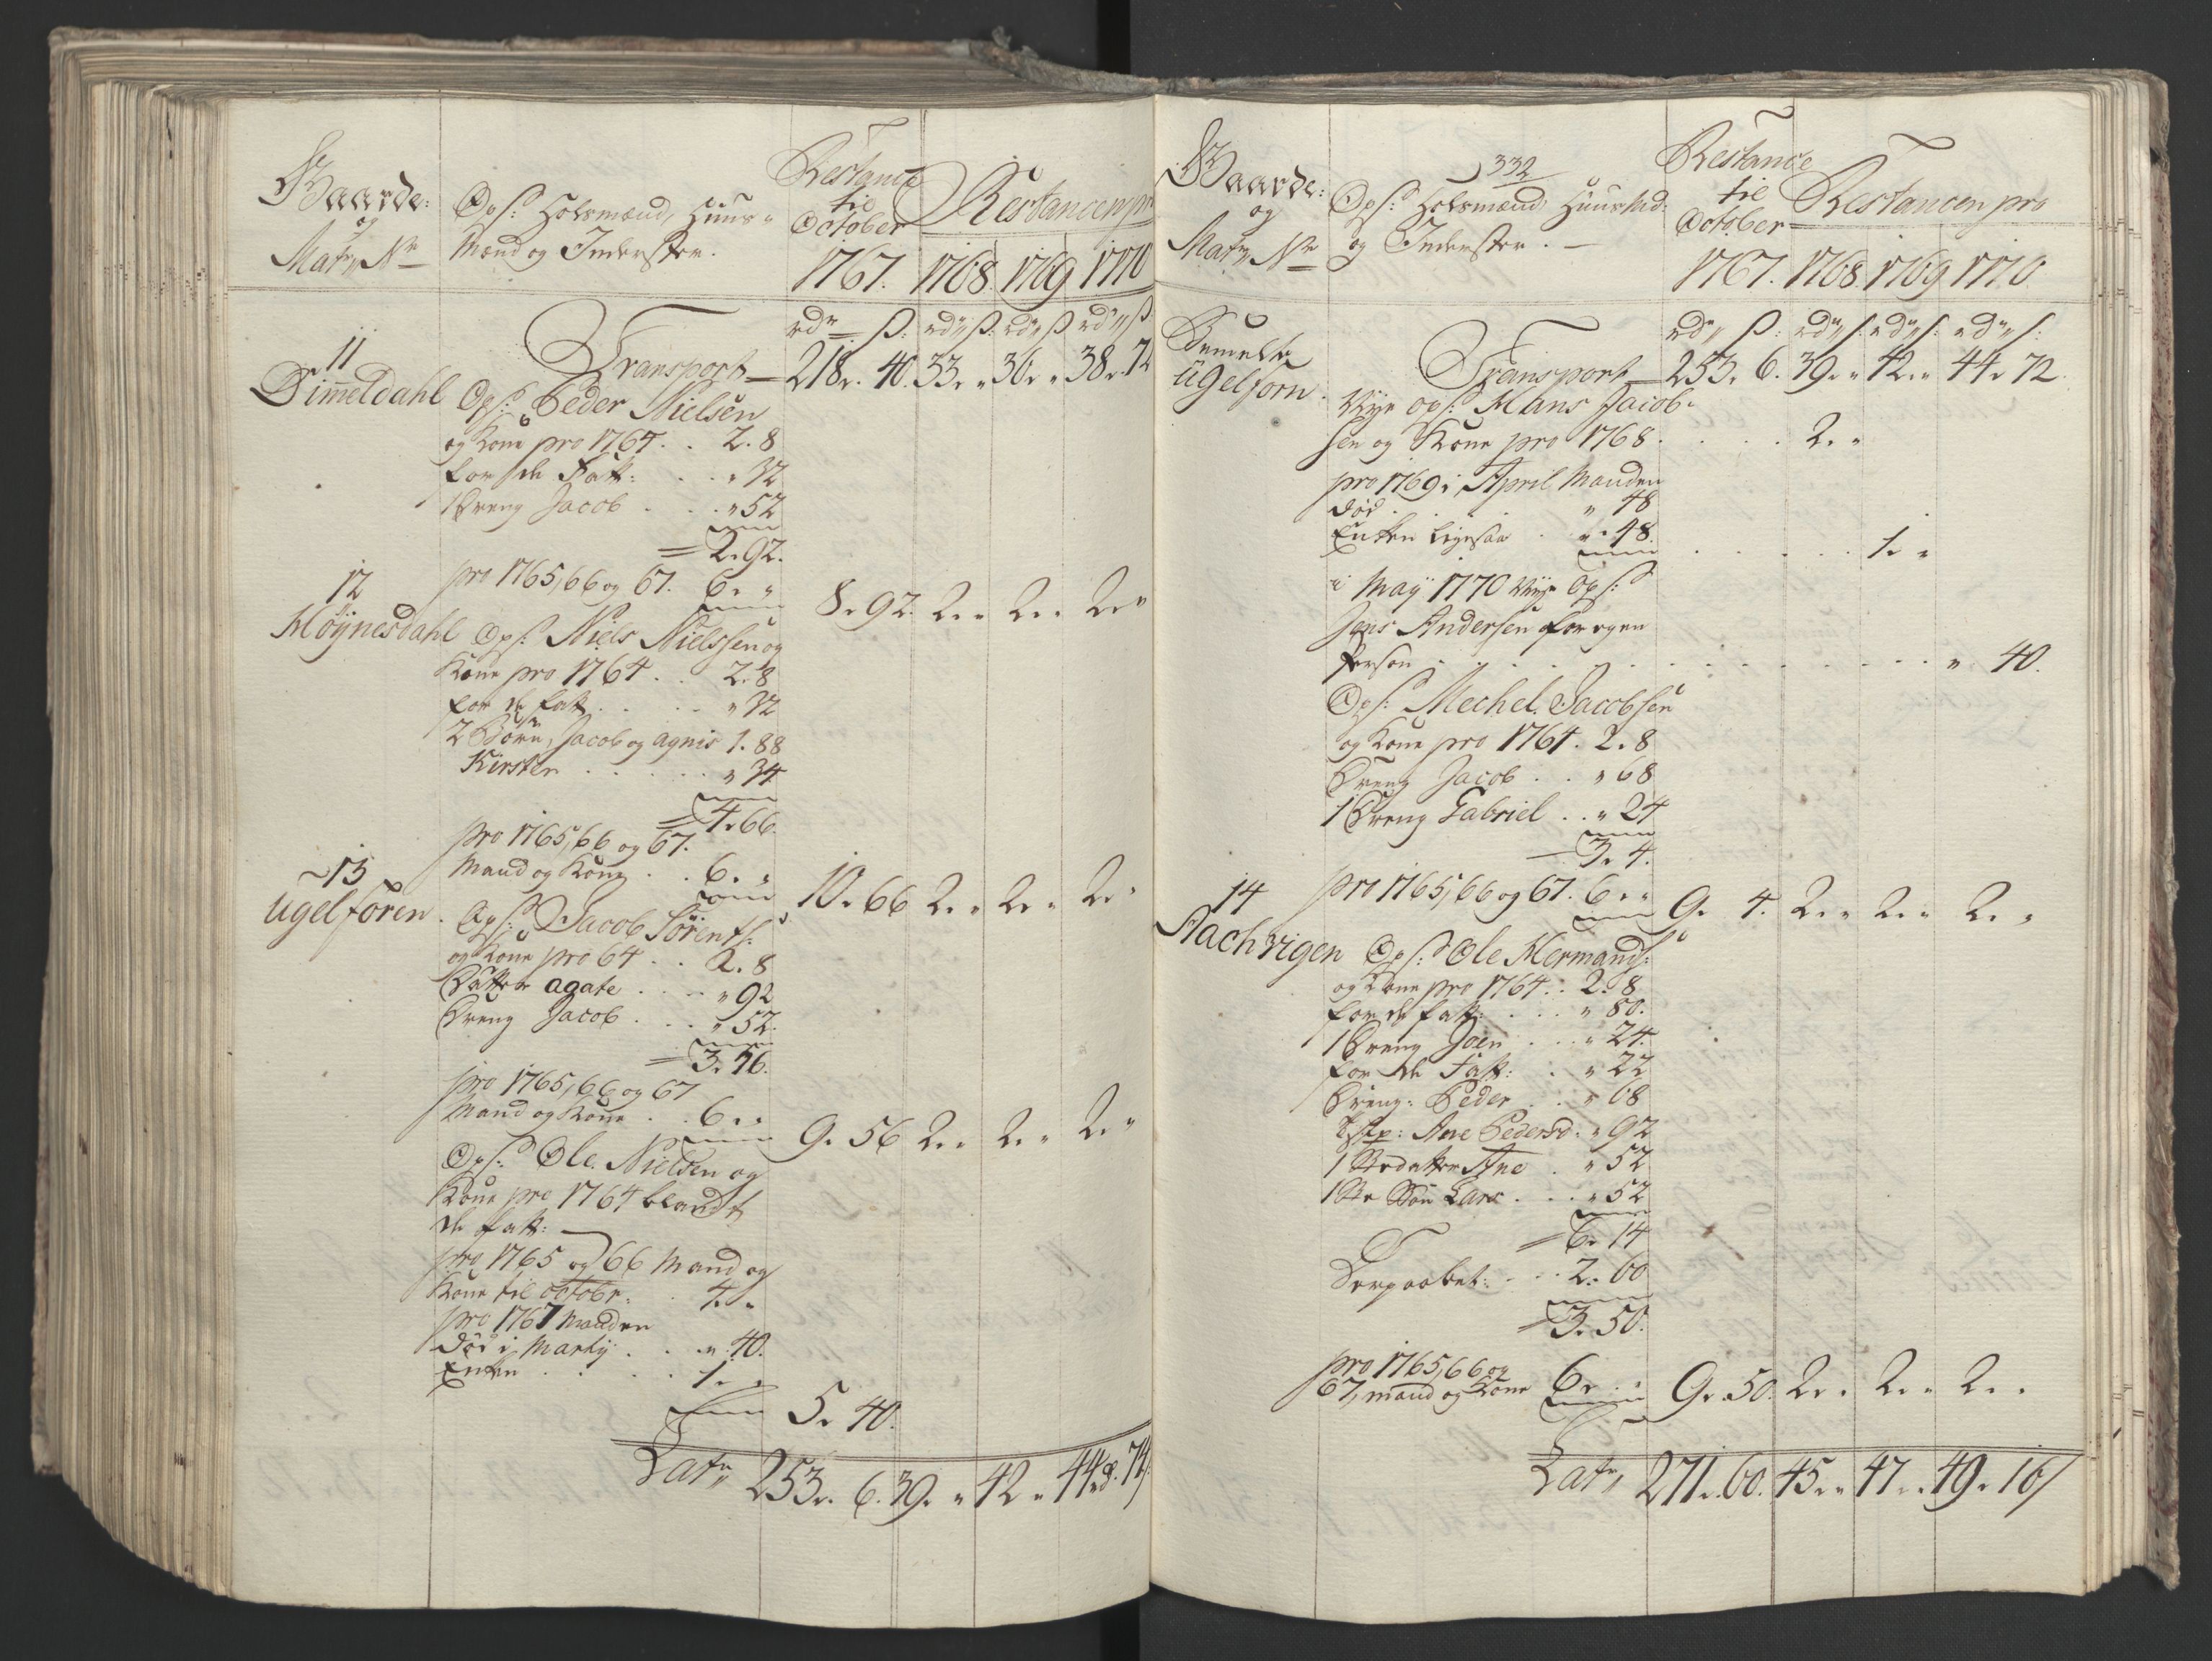 Gaarde:
og
Matr: No
Ops: Holsmænd, Huus-
Mænd og Inderster.
Restance
til
October
1767.
Restancen pro
1768. 1769 1770
rdr ß. rdr ß. rdr ß rdr ß.
Transport 218. 40. 33. " 36. " 38. 72
11
Dimeldahl
Ops: Peder Nielsen
og Kone pro 1764 . . 2. 8
for de Fatt: . . " 32
1 Dreng Jacob . . . " 52
= 2. 92.
pro 1765, 66 og 67. 6. " 8. 92. 2. " 2. " 2. "
12
Høynesdahl
Ops: Niels Nielssen og
Kone pro 1764 . . 2. 8
for de fatt . . . . " 32
2 Børn, Jacob og Agnis 1. 88
Kirsten . . . . . " 34
= 4. 66.
pro 1765, 66 og 67.
Mand og Kone . . 6. " 10. 66 2. " 2. " 2. "
13
Ugelføren.
Ops: Jacob Sørens:
og Kone pro 64 . . 2. 8
Datter Agate . . . . " 92
Dreng Jacob . . . " 52.
= 3. 56.
pro 1765, 66 og 67
Mand og Kone . . 6. " 9. 56 2. " 2. " 2. "
Ops: Ole Nielsen og
Kone pro 1764 blandt
de fatt:
pro 1765 og 66 Mand og
Kone til octobr: . 4. "
pro 1767 Manden
død i Marty . . " 40.
Enken . . . . 1. "
5. 40.
Lat: 253. 6. 39. " 42 " 44. 72
332
Gaarde:
og
Matr: No
Ops: Holsmænd, Huusmd:
og Inderster. —
Restance
til
October
1767.
Restancen pro
1768. 1769 1770
rdr ß. rdr ß. rdr ß. rdr ß:
Transport 253. 6. 39. " 42. " 44. 72.
Ugelforn.
Nye ops: Hans Jacob-
sen og Kone pro 1768. . . . 2. "
pro 1769 i April Manden
død . . . " 48
Enken ligesaa . " 48. . . . . . 1. "
i May 1770 Nye Ops:
Jens Andersen for egen
Person . . . . . . . . . . . . " 40.
Ops: Mechel Jacobsen
og Kone pro 1764. 2. 8
Dreng Jacob . . " 68
1 Dreng Gabriel . . " 24
3. 4.
pro 1765, 66 og 67. 6. " 9. 4. 2. " 2. " 2. "
14
Aachvigen
Ops: Ole Hermands:
og Kone pro 1764 . . 2. 8
for de fatt: . . . " 80.
1 Dreng Joen . . . " 24.
for de Fatt: . " 22
Dreng: Peder . . " 68
Ane Pedersd: " 92
1 Stedatter Ane . " 52
1 Ste Søn Lars . . . " 52
= 6. 14
Derpaabet: . . . 2. 60
= 3. 50.
pro 1765, 66 og
67, mand og Kone 6. " 9. 50. 2. " 2. " 2. "
Lat: 271. 60. 45. " 47. " 49. 16